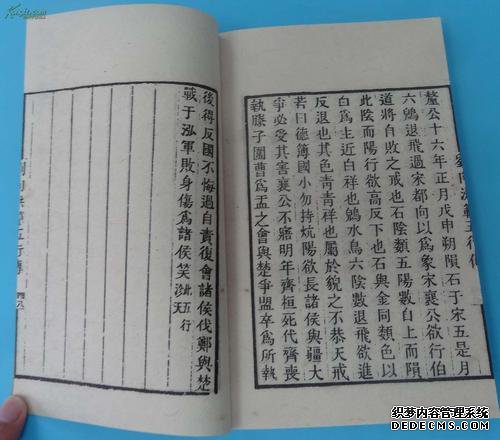 劉向洪範五行傳
釐公十六年正月戊申朔隕石于宋五是月
六鶂退飛過宋都向以爲象宋襄公欲行伯
道將自敗之戒也石陰類五陽數自上而隕
此陰而陽行欲高反下也石與金同類色以
白爲主近白祥也鶂水鳥六陰數退飛欲進
反退也其色青青祥也屬於貌之不恭天戒
若曰德薄國小勿持炕陽欲長諸侯與疆大
爭必受其害襄公不寤明年齊桓死伐齊喪
執滕子圍曹爲盂之會與楚爭盟卒爲所執
後得反國不悔過自責復會諸侯伐鄭與楚
戰于泓軍敗身傷爲諸侯笑此五行沴天
织梦内容管理系统
DEDECMS.COM